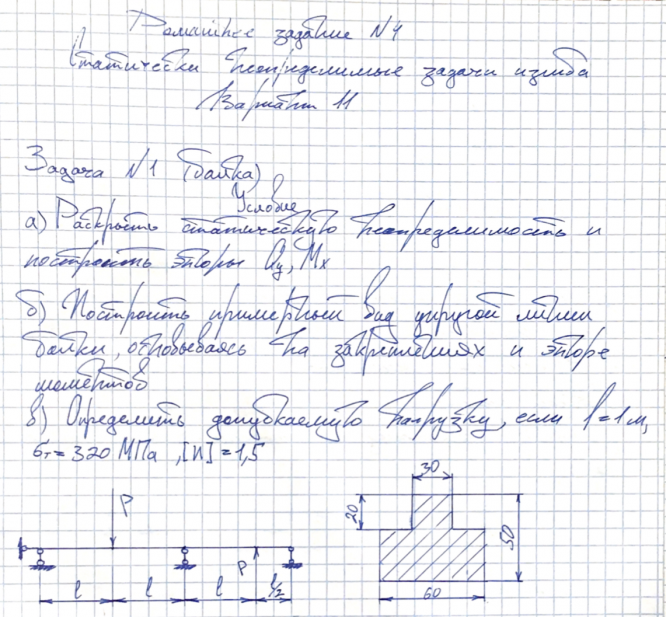 Домашнее задание №4
Статически неопределимые задачи изгиба
Вариант 11
Задача №1 (балка)
Условие
а) Раскрыть статическую неопределимость и
построить эпюры Qy, Mx
б) Построить примерный вид упругой линии
балки, основываясь на закреплениях и эпюре
моментов
в) Определить допускаемую нагрузку, если l=1м,
σт=320 МПа, [n]=1,5
30
P
20
50
P
l
l
l
l/2
60